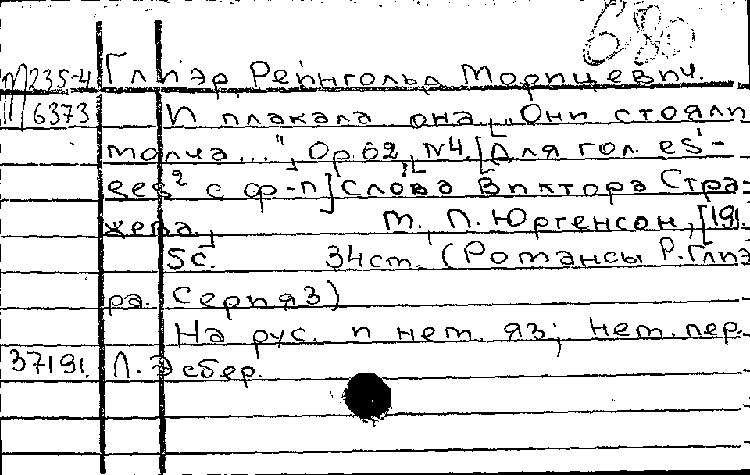 680
М235-4 Глиэр, Рейнгольд Морицевич.
III 6373 И плакала она, „Они стояли
молча...", Ор. 62, №4. [Для гол. es¹-
ees² с ф-п] Слова Виктора Стра-
жева, М., П. Юргенсон, [191.
5 с. 34 ст. (Романсы Р. Глиэ
ра. Серия 3)
На рус. и нем. яз; нем. пер.
37191. Л. Эсбер.